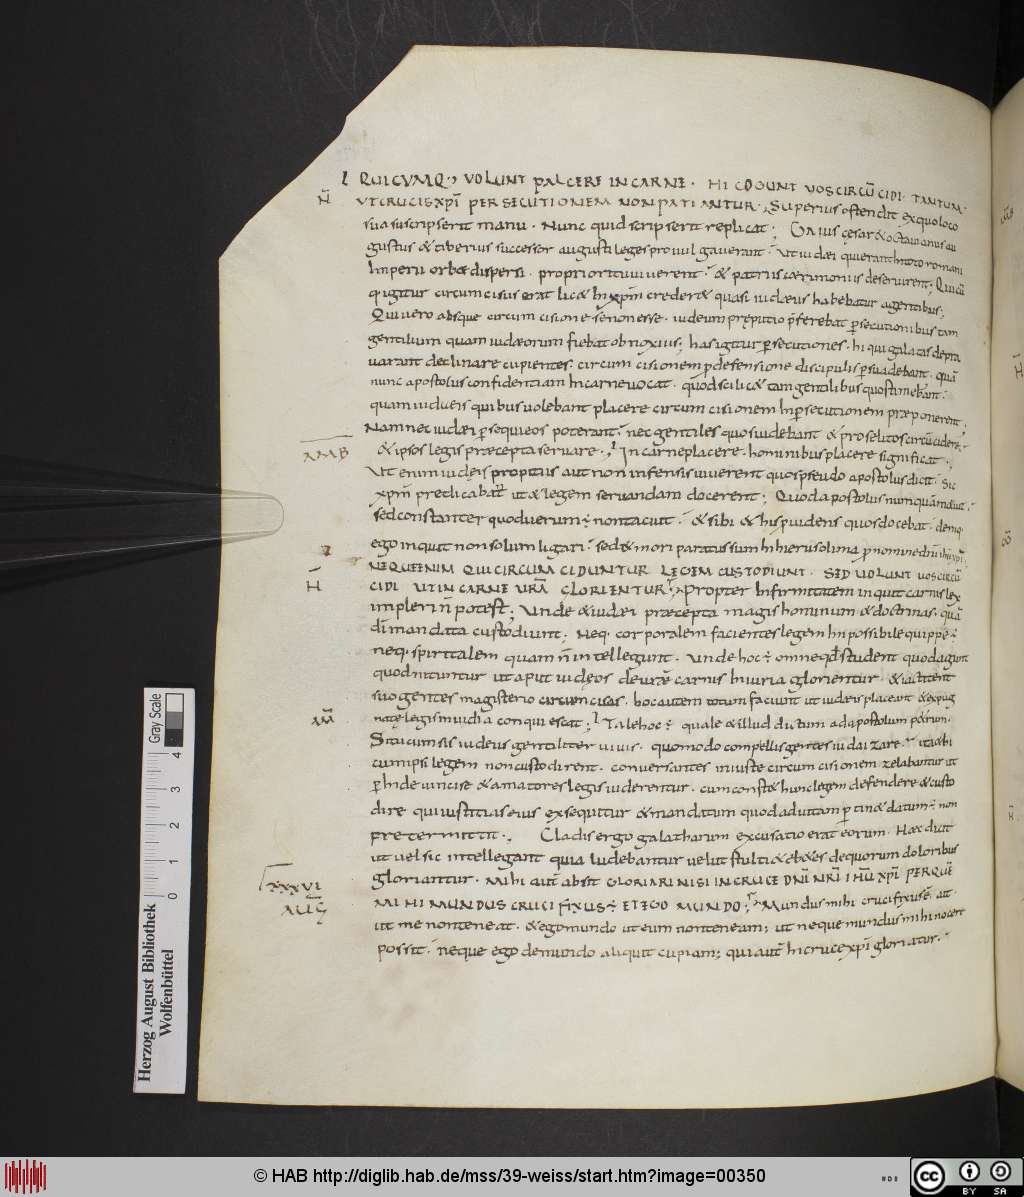 QUICUMQ; VOLUNT PALCERE IN CARNE · HI COGUNT VOS CIRCŪCIDI · TANTUM ·
H̄
UT CRUCIS XPĪ PERSECUTIONEM NON PATIANTUR · Superius oftendit ex quo loco
sua suscripserit manu · Nunc quid scripserit replicat ; Gaius cęsar & octauianus au
gustus & tiberius successor augusti leges promulgauerant · Ut iudæi qui erant in toto romani
Imperii orbæ dispersi · proprio ritu uiuerent · & patriis cærimoniis deseruirent ; Quicū
q igitur circumcisus erat lic& in xp̄m creder& quasi iudæus habebatur a gentibus ;
Qui uero absque circumcisione se non esse · iudeum pręputio p̄ferebat psecutionibus tam
gentilium quam iudæorum fiebat obnoxius ; has igitur psecutiones · hi qui galatas depra
uarant declinare cupientes · circumcisionem p defensione discipulis psuadebant · quā
nunc apostolus confidentiam in carne uocat · quod scilic& tam gentilibus quos timebant ·
quam iudęis quibus uolebant placere circumcisionem in psecutionem præponerent ;
Nam nec iudæi psequi eos poterant · nec gentiles quos uidebant & proselitos circūcidere ·
AMB
& ipsos legis præcepta seruare · In carne placere · hominibus placere significat ·
Ut enim iudęis propitiis aut non infensis uiuerent quos pseudo apostolus dicit · Sic
xp̄m predicabat ut & legem seruandam docerent ; Quod apostolus numquā
sed constanter quod uerum ÷ non tacuit · & sibi & his puidens quos docebat · deniq·
ego inquit non solum ligari · sed & mori paratus sum in hierusolima p nomine dn̄i ihū xp̄i ;
NEQUE ENIM QUI CIRCUMCIDUNTUR LEGEM CUSTODIUNT · SED UOLUNT UOS CIRCŪ
H̄
CIDI UT IN CARNE UR̄A GLORIENTUR · Propter Infirmitatem inquit carnis lex
impleri n̄ potest ; Unde & iudæi præcepta magis hominum & doctrinas · quā
dī mandata custodiunt ; Neq· corporalem facientes legem inpossibile quippe ÷
neq· spiritalem quam n̄ intellegunt · Unde hoc ÷ omne qd student quod agunt
quod nituntur ut aput iudęos de uræ carnis iniuria glorientur · & iactitent
suo gentes magisterio circumcisas · hoc autem totum faciunt ut iudæis placeant · & expug
AM̄
natę legis inuidia conquiescat ; Tale hoc ÷ quale & illud dictum ad apostolum p&rum ·
Si tu cum sis iudeus gentiliter uiuis · quomodo compellis gentes iudaizare · ita & ibi
cum ipsi legem non custodirent · conuersantes iniuste circumcisionem zelabantur ut
p hinde uincise & amatores legis uiderentur · cum const& hunc legem defendere & custo
dire qui iustitias eius exsequitur & mandatum quod ad uitam ptin& datum ÷ non
pretermittit · Cladis ergo galatharum excusatio erat eorum · Hæc dicit
ut uel sic intellegant quia ludebantur uelut stulti & &es de quorum doloribus
gloriantur · MIHI AUT̄ ABSIT GLORIARI NISI IN CRUCE DN̄I NR̄I IHŪ XPĪ PER QUĒ
XXXVI
AUG̅
MIHI MUNDUS CRUCIFIXUS ÷ ET EGO MUNDO · Mundus mihi crucifixus ÷ ait ·
ut me non teneat · & ego mundo ut eum non teneam ; ut neque mundus mihi nocere
possit · neque ego de mundo aliquit cupiam ; qui aut̄ in cruce xp̄i gloriatur ·
Herzog August Bibliothek
Wolfenbüttel
0 1 2 3 4
Gray Scale
© HAB http://diglib.hab.de/mss/39-weiss/start.htm?image=00350
HAB
cc BY SA